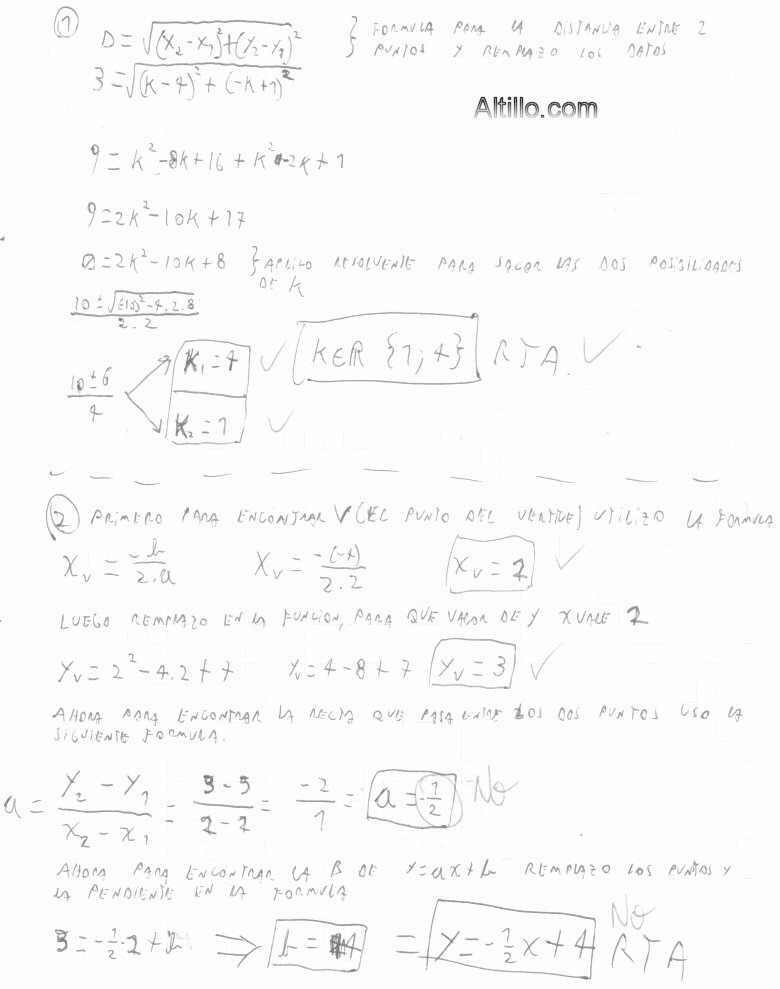 1
D = √(X₂-X₁)²+(Y₂-Y₁)² } FORMULA PARA LA DISTANCIA ENTRE 2
3 = √(K-4)²+(-K+1)² } PUNTOS Y REMPLAZO LOS DATOS
Altillo.com
9 = K²-8K+16 + K²-2K+1
9 = 2K²-10K+17
0 = 2K²-10K+8 } APLICO RESOLVENTE PARA SACAR LAS DOS POSIBILIDADES
DE K
10 ± √(-10)²-4.2.8 / 2.2
10 ± 6 / 4
K₁ = 4 ✓ K∈R {1;4} RTA. ✓
K₂ = 1 ✓
2 PRIMERO PARA ENCONTRAR V (EL PUNTO DEL VERTICE) UTILIZO LA FORMULA
Xv = -b / 2.a Xv = -(-4) / 2.2 Xv = 2 ✓
LUEGO REMPLAZO EN LA FUNCION, PARA QUE VALOR DE Y X VALE 2
Yv = 2²-4.2+7 Yv = 4-8+7 Yv = 3 ✓
AHORA PARA ENCONTRAR LA RECTA QUE PASA ENTRE LOS DOS PUNTOS USO LA
SIGUIENTE FORMULA.
a = Y₂-Y₁ / X₂-X₁ = 3-5 / = -2 / 1 = a = -1/2 No
AHORA PARA ENCONTRAR LA B DE Y=ax+b REMPLAZO LOS PUNTOS Y
LA PENDIENTE EN LA FORMULA
3 = -1/2.2+b ⇒ b = 4 = Y = -1/2x+4 No RTA